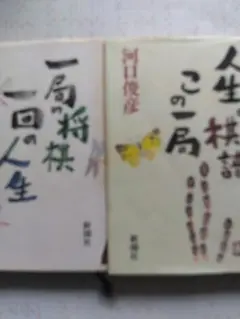 一局の将棋
一回の人生
新潮社
河口俊彦
人生の棋譜
この一局
新潮社